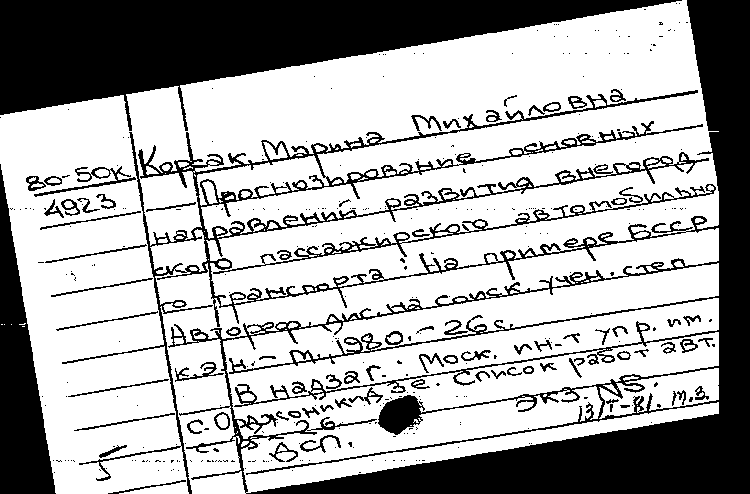 80-50К Корсак, Марина Михайловна
4923 Прогнозирование основных
направлений развития внегород-
ского пассажирского автомобильно
го транспорта: На примере БССР
Автореф. дис. на соиск. учен. степ
к.э.н. - М., 1980. - 26 с.
В надзаг.: Моск. ин-т упр. им.
с. Орджоникидзе. Список работ авт.
с. 25-26
ДСП.
экз. N5.
13/I-81. М.З.
5